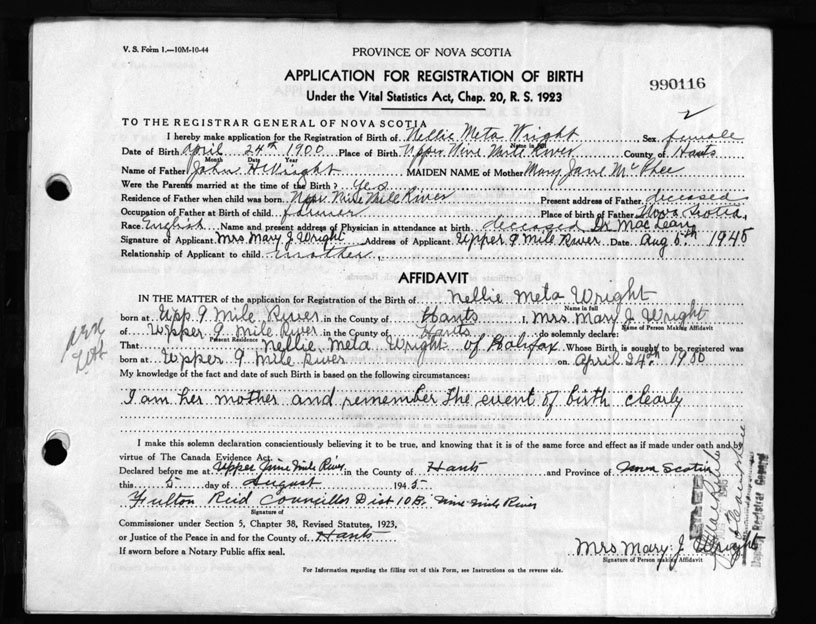 V. S. Form 1.—10M-10-44
PROVINCE OF NOVA SCOTIA
APPLICATION FOR REGISTRATION OF BIRTH
990116
Under the Vital Statistics Act, Chap. 20, R. S. 1923
2
TO THE REGISTRAR GENERAL OF NOVA SCOTIA
I hereby make application for the Registration of Birth of Nellie Meta Wright Sex female
Name in full
Date of Birth April 24th 1900 Place of Birth Upper Nine Mile River County of Hants
Month Date Year
Name of Father John H Wright MAIDEN NAME of Mother Mary Jane McPhee
Were the Parents married at the time of the Birth? Yes
Residence of Father when child was born. Upper Nine Mile River Present address of Father deceased
Occupation of Father at Birth of child. farmer Place of birth of Father Nova Scotia,
Race English Name and present address of Physician in attendance at birth. deceased Dr MacLean
Signature of Applicant Mrs Mary J. Wright Address of Applicant Upper 9 Mile River Date Aug 5th 1945
Relationship of Applicant to child mother,
AFFIDAVIT
IN THE MATTER of the application for Registration of the Birth of Nellie Meta Wright
Name in full
born at Upp. 9 Mile River in the County of Hants I, Mrs. Mary J. Wright
Name of Person Making Affidavit
of Upper 9 Mile River in the County of Hants do solemnly declare:
Present Residence
That Nellie Meta Wright of Halifax Whose Birth is sought to be registered was
born at Upper 9 Mile River on April 24th 1900
My knowledge of the fact and date of such Birth is based on the following circumstances:
I am her mother and remember the event of birth clearly
I make this solemn declaration conscientiously believing it to be true, and knowing that it is of the same force and effect as if made under oath and by
virtue of The Canada Evidence Act.
Declared before me at Upper Nine Mile River in the County of Hants and Province of Nova Scotia
this 5 day of August 1945.
Fulton Reid Councillor Dist 10B. Nine Mile River
Signature of
Commissioner under Section 5, Chapter 38, Revised Statutes, 1923,
or Justice of the Peace in and for the County of Hants
If sworn before a Notary Public affix seal.
Mrs Mary J. Wright
Signature of Person making Affidavit
For Information regarding the filling out of this Form, see Instructions on the reverse side.
Deputy Registrar General